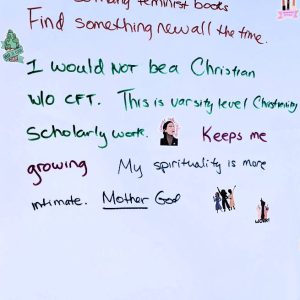 so many feminist books
Find something new all the time.
I would NOT be a Christian
w/o CFT. This is varsity level Christianing
Scholarly work. Keeps me
growing My spirituality is more
intimate. Mother God